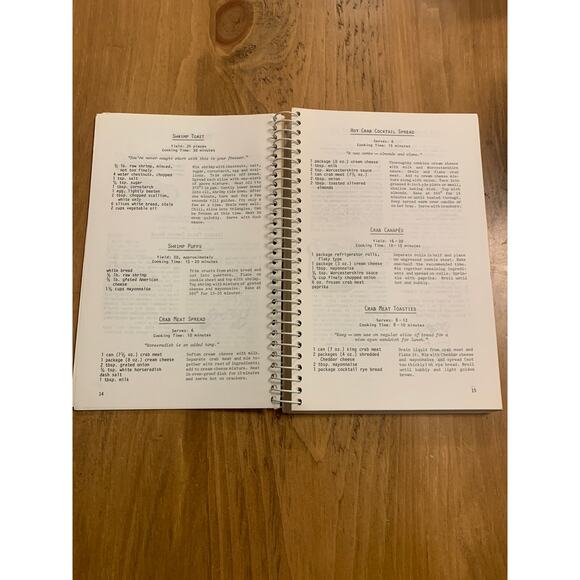 SHRIMP TOAST
Yield: 24 pieces
Cooking Time: 30 minutes
"You're never caught short with this in your freezer."
½ lb. raw shrimp, minced,
not too finely
4 water chestnuts, chopped
1 tsp. salt
½ tsp. sugar
1 tbsp. cornstarch
1 egg, lightly beaten
2 tbsp. chopped scallion,
white only
6 slices white bread, stale
2 cups vegetable oil
Mix shrimp with chestnuts, salt,
sugar, cornstarch, egg and scal-
lions. Trim crusts off bread.
SHRIMP PUFFS
Yield: 50, approximately
Cooking Time: 15 - 20 minutes
white bread
½ lb. raw shrimp
½ lb. grated American
cheese
1½ cups mayonnaise
Trim crusts from white bread and
cut into quarters. Place on
cookie sheet and top with shrimp.
Top shrimp with mixture of grated
cheese and mayonnaise. Bake at
CRAB MEAT SPREAD
Serves: 6
Cooking Time: 10 minutes
"Horseradish is an added tang."
1 can (7½ oz.) crab meat
1 package (8 oz.) cream cheese
2 tbsp. grated onion
½ tsp. white horseradish
dash salt
1 tbsp. milk
Soften cream cheese with milk.
Separate crab meat and mix to-
gether with rest of ingredients;
add to cream cheese mixture. Heat
in oven-proof dish for 10 minutes
and serve hot on crackers.
14
HOT CRAB COCKTAIL SPREAD
Serves: 6
Cooking Time: 15 minutes
1 package (8 oz.) cream cheese
1 tbsp. milk
1 tsp. Worcestershire sauce
1 can crab meat (7½ oz.)
2 tbsp. onion
2 tbsp. toasted slivered
almonds
Thoroughly combine cream cheese
with milk and Worcestershire
sauce. Drain and flake crab
meat. Add to cream cheese mix-
CRAB CANAPÉS
Yield: 16 - 20
Cooking Time: 10 - 15 minutes
1 package refrigerator rolls,
flaky type
1 package (3 oz.) cream cheese
1 tbsp. mayonnaise
½ tsp. Worcestershire sauce
¼ cup finely chopped onion
6 oz. frozen crab meat
paprika
Separate rolls in half and place
on ungreased cookie sheet. Bake
around the recommended time.
Mix together remaining ingredi-
ents and spread on rolls. Sprin-
kle with paprika. Broil until
hot and bubbly.
CRAB MEAT TOASTIES
Serves: 8 - 12
Cooking Time: 8 - 10 minutes
"Easy — can use on regular slice of bread for a
nice open sandwich for lunch."
1 can (7 oz.) king crab meat
2 packages (4 oz.) shredded
Cheddar cheese
2 tbsp. mayonnaise
1 package cocktail rye bread
Drain liquid from crab meat and
flake it. Mix with Cheddar cheese
and mayonnaise, and spread (not
too thickly) on rye bread. Broil
until bubbly and light golden
brown.
15